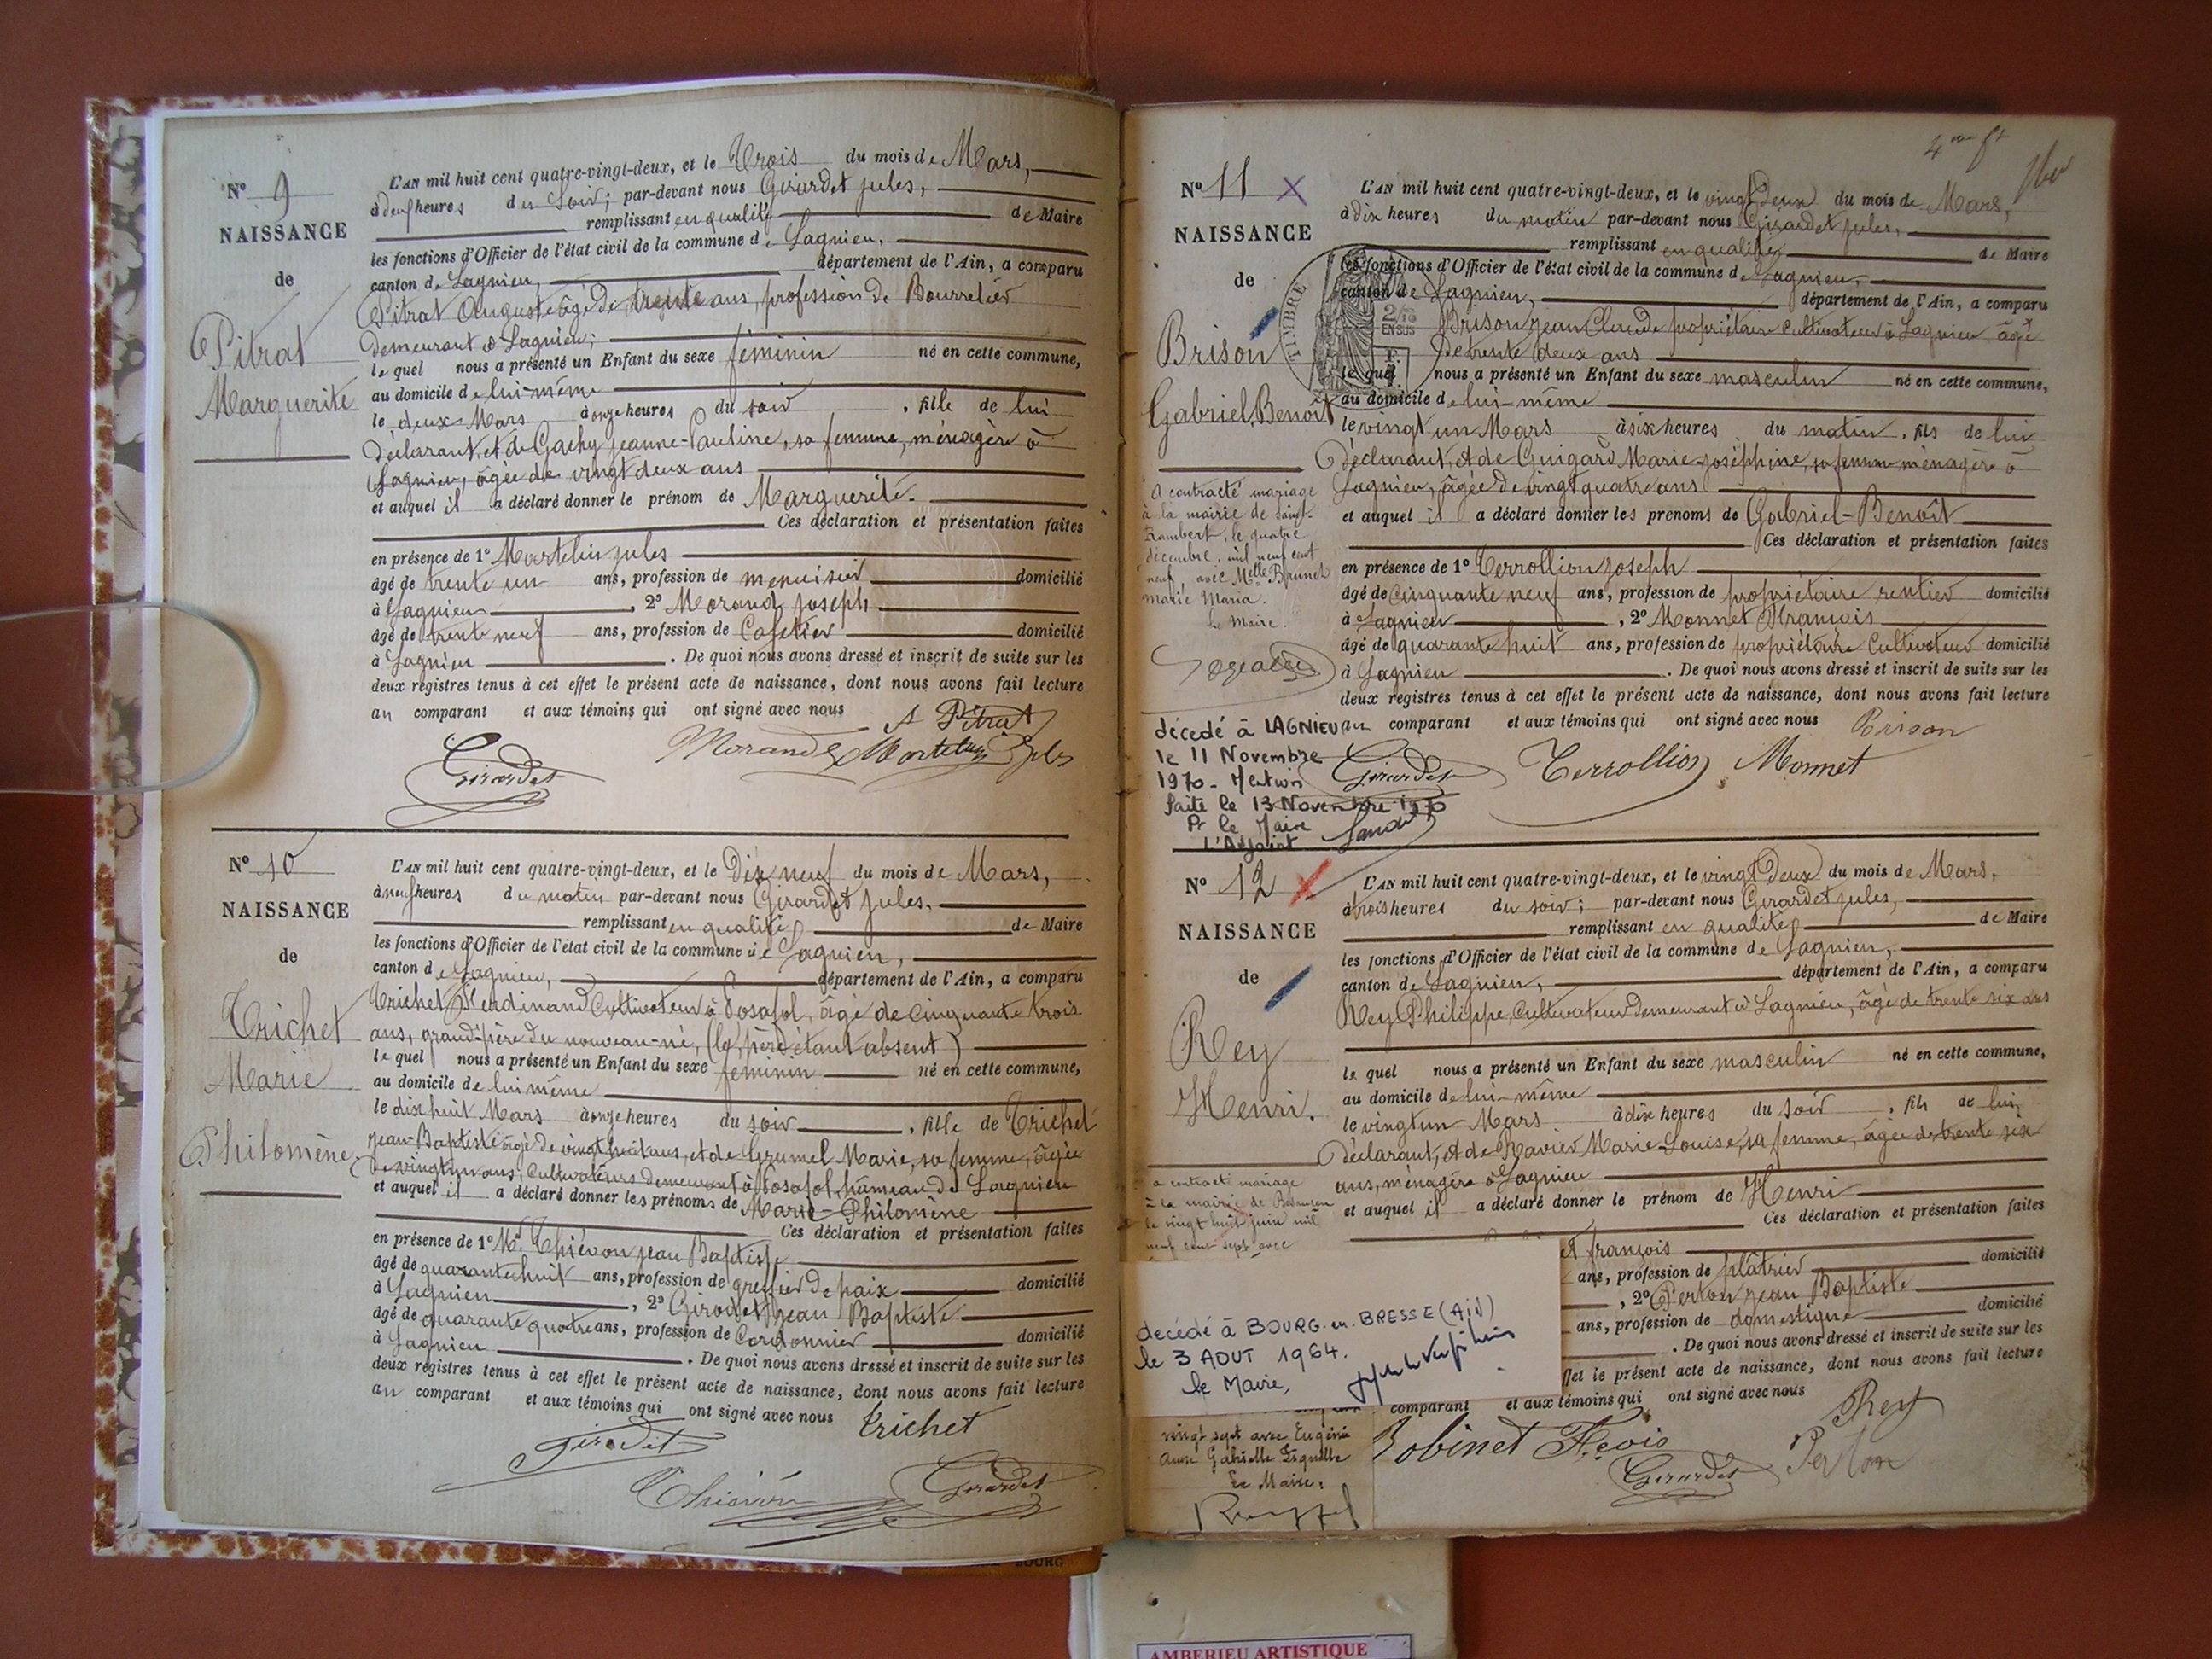 N° 9
NAISSANCE
de
Pitrat
Marguerite
L'AN mil huit cent quatre-vingt-deux, et le Trois du mois de Mars,
à deux heures du Soir; par-devant nous Girardet jules,
remplissant en qualité de Maire
les fonctions d'Officier de l'état civil de la commune de Lagnieu,
canton de Lagnieu, département de l'Ain, a comparu
Pitrat Auguste âgé de trente ans, profession de Bourrelier
demeurant à Lagnieu;
lequel nous a présenté un Enfant du sexe féminin né en cette commune,
au domicile de lui-même
le deux Mars à onze heures du soir, fille de lui
déclarant, et de Gachy Jeanne-Pauline, sa femme, ménagère à
Lagnieu, âgée de vingt deux ans
et auquel il a déclaré donner le prénom de Marguerite.
Ces déclaration et présentation faites
en présence de 1° Martelin jules
âgé de trente un ans, profession de menuisier domicilié
à Lagnieu, 2° Morand joseph
âgé de trente neuf ans, profession de Cafetier domicilié
à Lagnieu. De quoi nous avons dressé et inscrit de suite sur les
deux registres tenus à cet effet le présent acte de naissance, dont nous avons fait lecture
au comparant et aux témoins qui ont signé avec nous A Pitrat
Girardet Morand Martelin Jules
N° 10
NAISSANCE
de
Trichet
Marie
Philomène
L'AN mil huit cent quatre-vingt-deux, et le Dix neuf du mois de Mars,
à neuf heures du matin par-devant nous Girardet jules,
remplissant en qualité de Maire
les fonctions d'Officier de l'état civil de la commune de Lagnieu,
canton de Lagnieu, département de l'Ain, a comparu
Trichet Ferdinand Cultivateur à Posafol, âgé de cinquante trois
ans, grand-père du nouveau-né, (le père étant absent)
lequel nous a présenté un Enfant du sexe féminin né en cette commune,
au domicile de lui même
le dix huit Mars à onze heures du soir, fille de Trichet
Jean-Baptiste âgé de vingt huit ans, et de Grumel Marie, sa femme, âgée
de vingt un ans, Cultivateurs demeurant à Posafol, hameau de Lagnieu
et auquel il a déclaré donner les prénoms de Marie-Philomène
Ces déclaration et présentation faites
en présence de 1° Mr Thiévon jean Baptiste
âgé de quarante huit ans, profession de greffier de paix domicilié
à Lagnieu, 2° Girodet jean Baptiste
âgé de quarante quatre ans, profession de Cordonnier domicilié
à Lagnieu. De quoi nous avons dressé et inscrit de suite sur les
deux registres tenus à cet effet le présent acte de naissance, dont nous avons fait lecture
au comparant et aux témoins qui ont signé avec nous Trichet
Girodet
Thiévon Girardet
4me ft
N° 11 X
NAISSANCE
de
Brison
Gabriel, Benoît
TIMBRE
EN SUS
L'AN mil huit cent quatre-vingt-deux, et le vingt Deux du mois de Mars,
à dix heures du matin par-devant nous Girardet jules,
remplissant en qualité de Maire
les fonctions d'Officier de l'état civil de la commune de Lagnieu,
canton de Lagnieu, département de l'Ain, a comparu
Brison Jean Claude propriétaire Cultivateur à Lagnieu âgé
de trente deux ans
lequel nous a présenté un Enfant du sexe masculin né en cette commune,
au domicile de lui-même
le vingt un Mars à six heures du matin, fils de lui
déclarant, et de Guigard Marie-joséphine, sa femme ménagère à
Lagnieu, âgée de vingt quatre ans
et auquel il a déclaré donner les prénoms de Gabriel-Benoît
Ces déclaration et présentation faites
en présence de 1° Terrollion joseph
âgé de cinquante neuf ans, profession de propriétaire rentier domicilié
à Lagnieu, 2° Monnet François
âgé de quarante huit ans, profession de propriétaire Cultivateur domicilié
à Lagnieu. De quoi nous avons dressé et inscrit de suite sur les
deux registres tenus à cet effet le présent acte de naissance, dont nous avons fait lecture
au comparant et aux témoins qui ont signé avec nous Brison
Girardet Terrollion Monnet
A contracté mariage
à la mairie de Saint-
Rambert, le quatre
décembre, mil neuf cent
neuf, avec Melle Brunet
Marie Maria.
Le Maire.
décédé à LAGNIEU
le 11 Novembre
1970 - Mention
faite le 13 Novembre 1970
Pr le Maire
L'Adjoint
N° 12 X
NAISSANCE
de
Rey
Henri.
L'AN mil huit cent quatre-vingt-deux, et le vingt Deux du mois de Mars,
à trois heures du soir; par-devant nous Girardet jules,
remplissant en qualité de Maire
les fonctions d'Officier de l'état civil de la commune de Lagnieu,
canton de Lagnieu, département de l'Ain, a comparu
Rey Philippe, Cultivateur demeurant à Lagnieu, âgé de trente six ans
lequel nous a présenté un Enfant du sexe masculin né en cette commune,
au domicile de lui-même
le vingt un Mars à dix heures du soir, fils de lui
déclarant, et de Ravier Marie-Louise, sa femme, âgée de trente six
ans, ménagère à Lagnieu
et auquel il a déclaré donner le prénom de Henri
Ces déclaration et présentation faites
et françois
ans, profession de plâtrier domicilié
, 2° Perton jean Baptiste
ans, profession de domestique domicilié
. De quoi nous avons dressé et inscrit de suite sur les
ffet le présent acte de naissance, dont nous avons fait lecture
comparant et aux témoins qui ont signé avec nous Rey
Robinet Fçois Girardet Perton
a contracté mariage
à la mairie de
le vingt huit juin mil
neuf cent sept avec
décédé à BOURG-en-BRESSE (AIN)
le 3 AOUT 1964.
le Maire,
vingt sept avec Eugénie
Anne Gabrielle
Le Maire:
BOURG
AMBERIEU ARTISTIQUE